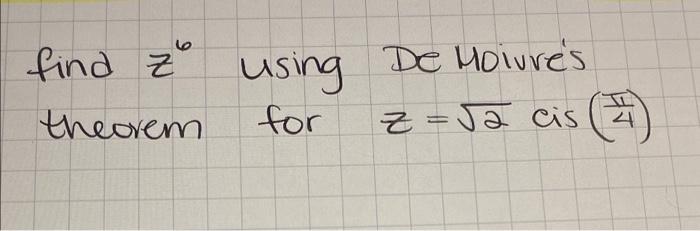 find z⁶ using De Moivre's
theorem for z = √2 cis (π/4)